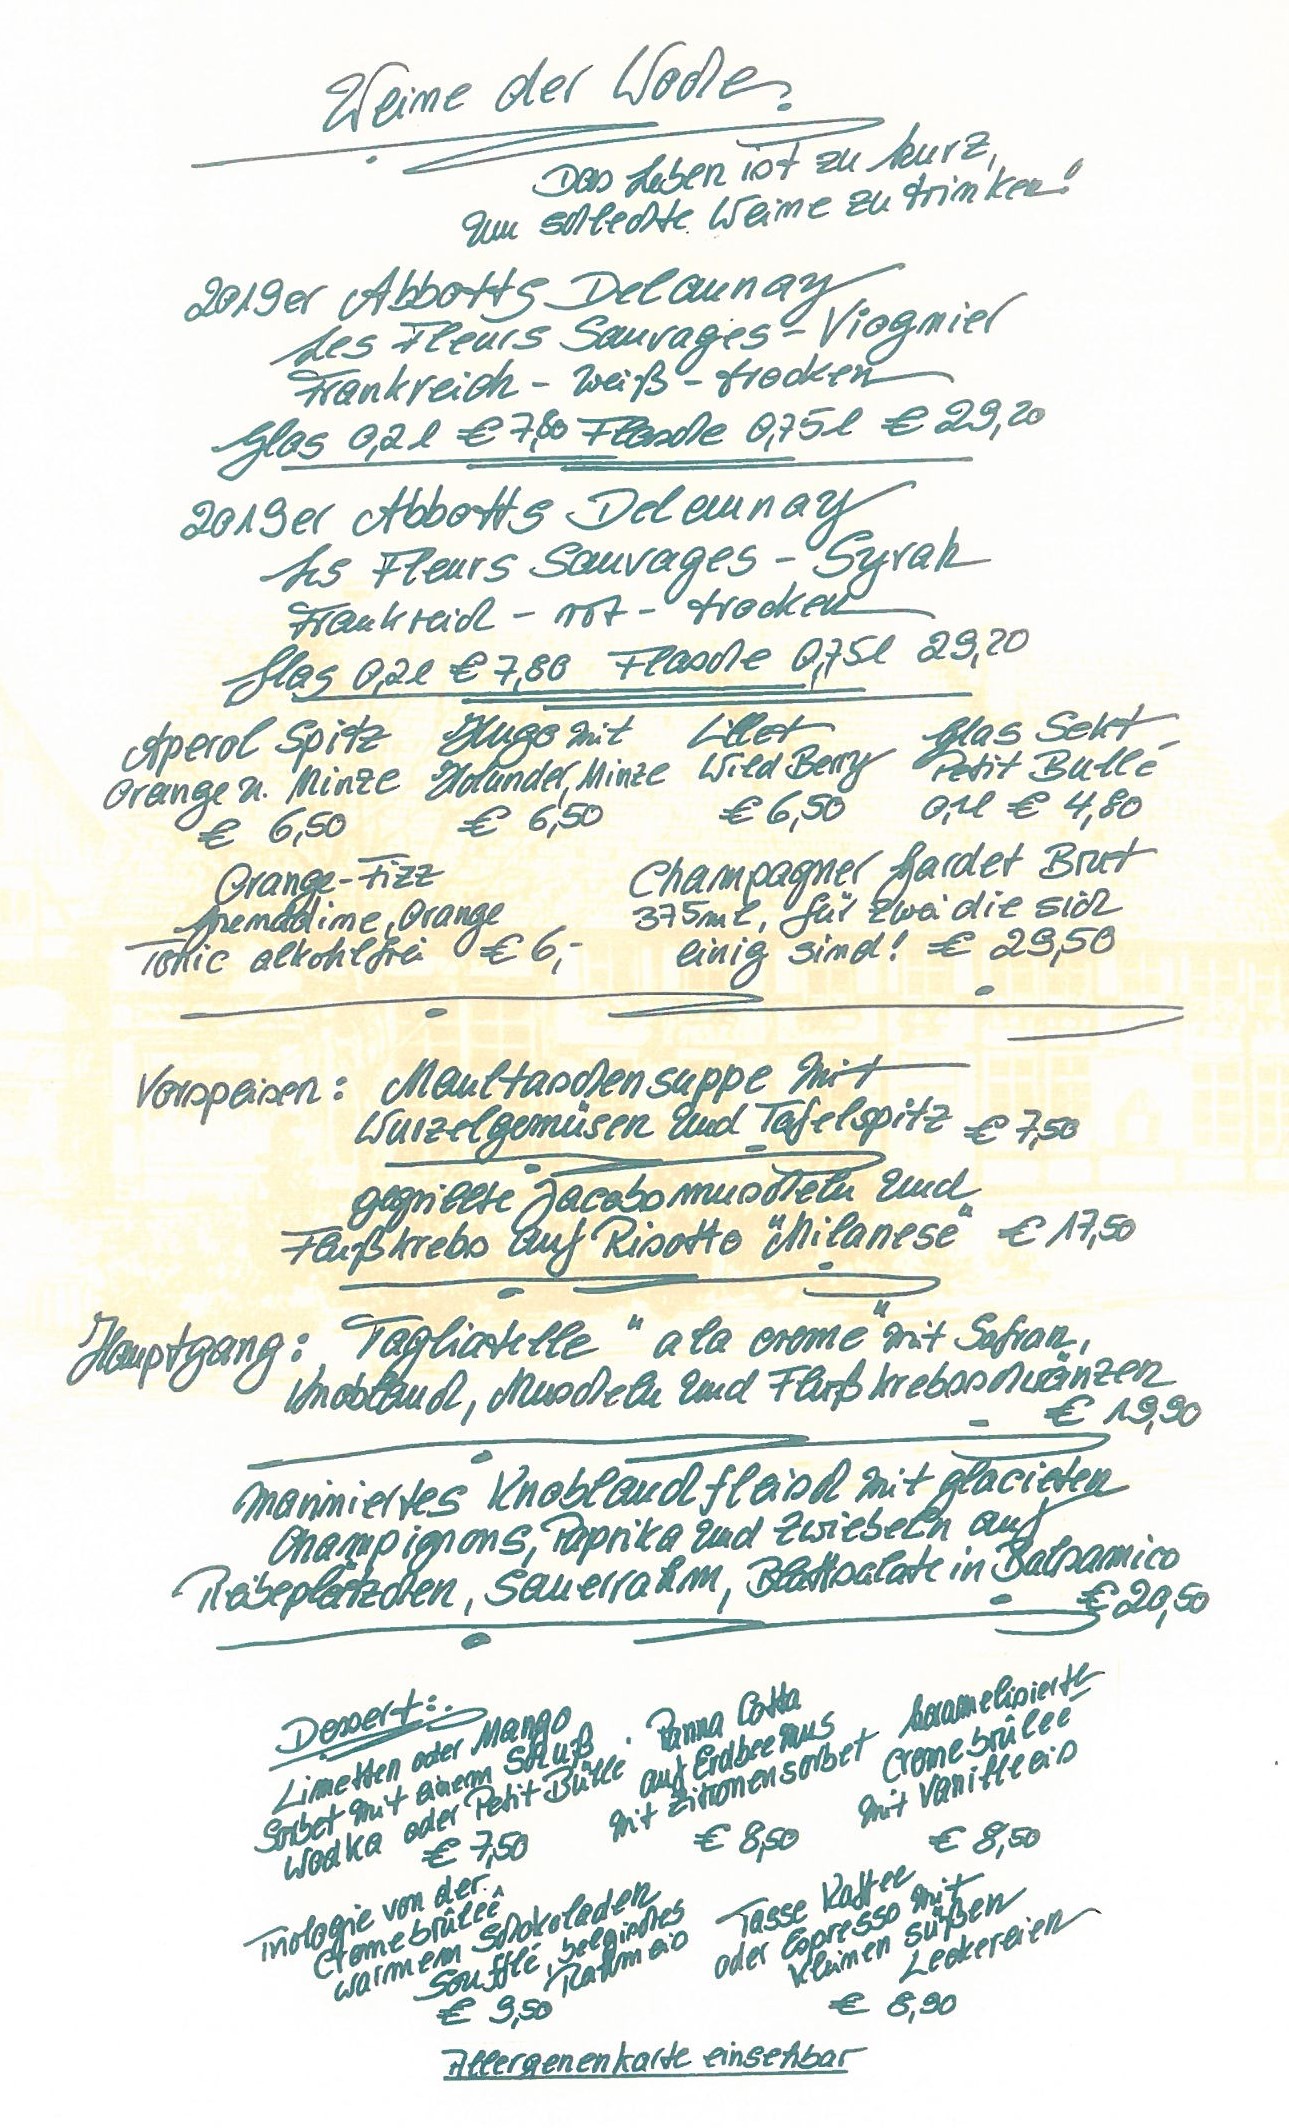 Weine der Woche
Das Leben ist zu kurz,
um schlechte Weine zu trinken!
2019er Abbotts Delaunay
Les Fleurs Sauvages - Viognier
Frankreich - weiß - trocken
Glas 0,2l € 7,80 Flasche 0,75l € 29,20
2019er Abbotts Delaunay
Les Fleurs Sauvages - Syrah
Frankreich - rot - trocken
Glas 0,2l € 7,80 Flasche 0,75l 29,20
Aperol Spitz
Orange u. Minze
€ 6,50
Hugo mit
Holunder, Minze
€ 6,50
Lillet
Wild Berry
€ 6,50
Glas Sekt
Petit Bulle
0,1l € 4,80
Orange-Fizz
Grenadine, Orange
Tonic alkohlfrei € 6,-
Champagner Gardet Brut
375ml, für zwei die sich
einig sind! € 29,50
Vorspeisen: Maultaschensuppe mit
Wurzelgemüsen und Tafelspitz € 7,50
gegrillte Jacobsmuscheln und
Flußkrebs auf Risotto "Milanese" € 17,50
Hauptgang: Tagliatelle "a la creme" mit Safran,
Knoblauch, Muscheln und Flußkrebsschwänzen
€ 19,90
Mariniertes Knoblauchfleisch mit glacierten
Champignons, Paprika und Zwiebeln auf
Reibeplätzchen, Sauerrahm, Blattsalate in Balsamico
€ 20,50
Dessert:
Limetten oder Mango
Sorbet mit einem Schuß
Wodka oder Petit Bulle
€ 7,50
Panna Cotta
auf Erdbeermus
mit Zitronensorbet
€ 8,50
karamelisierte
Cremebrûlee
mit Vanilleeis
€ 8,50
Triologie von der
Cremebrûlee
warmem Schokoladen
Soufflé, belgisches
Rahmeis
€ 9,50
Tasse Kaffee
oder Espresso mit
kleinen süßen
Leckereien
€ 8,90
Allergenenkarte einsehbar